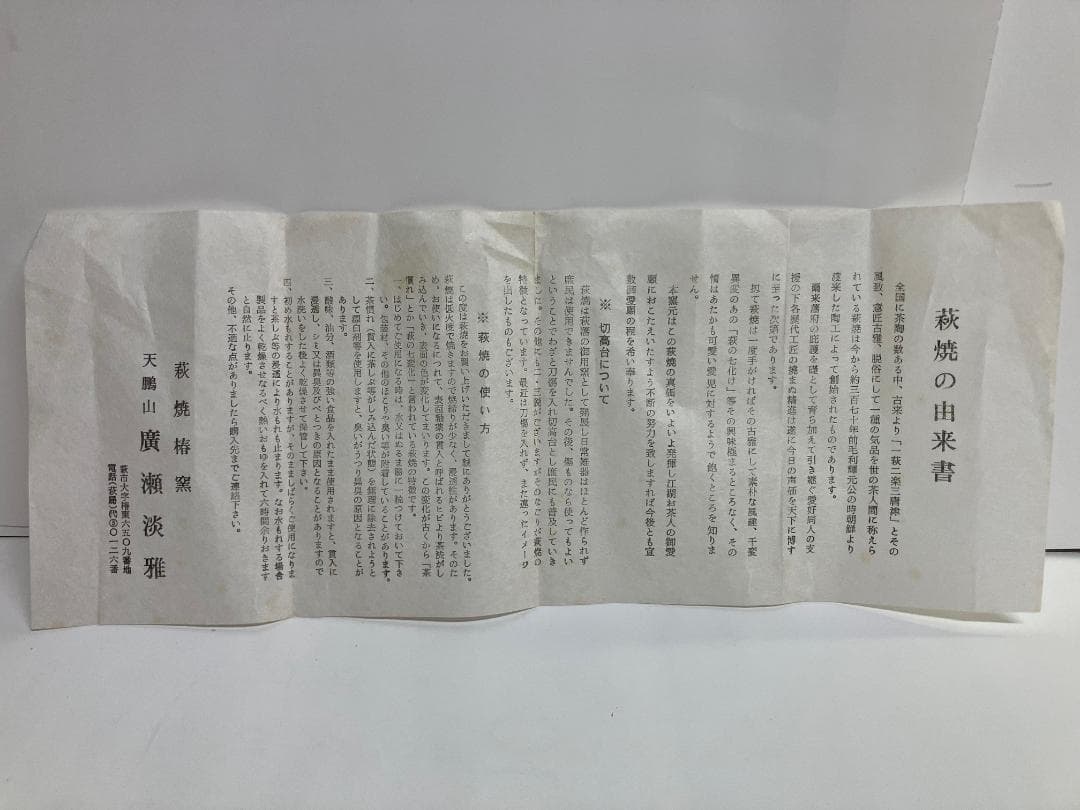 萩焼の由来書
全国に茶陶の数ある中、古来より「一萩二楽三唐津」とその
風致、意匠古雅、脱俗にして一種の気品を世の茶人間に称えら
れている萩焼は今から約三百七十年前毛利輝元公の時朝鮮より
渡来した陶工によって創始されたものであります。
爾来藩府の庇護を礎として育ち加えて引き継ぐ愛好同人の支
援の下各歴代工匠の撓まぬ精進は遂に今日の声価を天下に博す
に至った次第であります。
扨て萩焼は一度手がければその古雅にして素朴な風趣、千変
異変のあの「萩の七化け」等その興味極まるところなく、その
情はあたかも可愛い愛児に対するようで 飽くところを知りま
せん。
本窯元はこの萩焼の真価をいよいよ発揮し江湖お茶人の御愛
願におこたえいたすよう不断の努力を致しますれば今後とも宜
敷御愛顧の程を希い奉ります。
※ 切高台について
萩焼は萩藩の御用窯として発展し日常雑器はほとんど作られず
庶民は使用できませんでした。その後、傷ものなら使ってもよい
ということでわざと刀傷を入れ切高台とし庶民にも普及していき
ました。その他にも二・三説がございますがそのなごりが萩焼の
特徴となっています。最近は刀傷を入れず、また違ったイメージ
を出したものもございます。
※ 萩焼の使い方
この度は萩焼をお買い上げいただきまして誠にありがとうございました。
萩焼は低火度で焼きますので焼締りが少なく、浸透性があります。そのた
め、お使いになるにつれて、表面釉薬の貫入と呼ばれるヒビより茶渋がし
み込んでいき、表面の色が変化してまいります。この変化が古くから「茶
慣れ」とか「萩の七変化」と言われている萩焼の特徴です。
一、はじめてご使用になる時は、水又はぬるま湯に一晩つけておいて下さ
い。包装材、その他のほこりや臭い等が附着していることがあります。
二、茶慣れ(貫入に茶しぶ等がしみ込んだ状態)を無理に除去されようと
して漂白剤等を使用しますと、臭いがうつり異臭の原因となることが
あります。
三、酸味、油分、酒類等の強い食品を入れたまま使用されますと、貫入に
浸透し、シミ又は異臭及びべとつきの原因となることがありますので
水洗いをした後よく乾燥させて保管して下さい。
四、初め水もれすることがありますが、そのまましばらくご使用になりま
すと茶しぶ等の浸透により水もれも止まります。なお水もれする場合
製品をよく乾燥させなるべく熱いおもゆを入れて六時間余りおきます
と自然に止ります。
その他、不適な点がありましたら購入先までご連絡下さい。
萩焼椿窯
天鵬山 廣瀬淡雅
萩市大字椿東六五〇九番地
電話(萩局)代〇一二六番